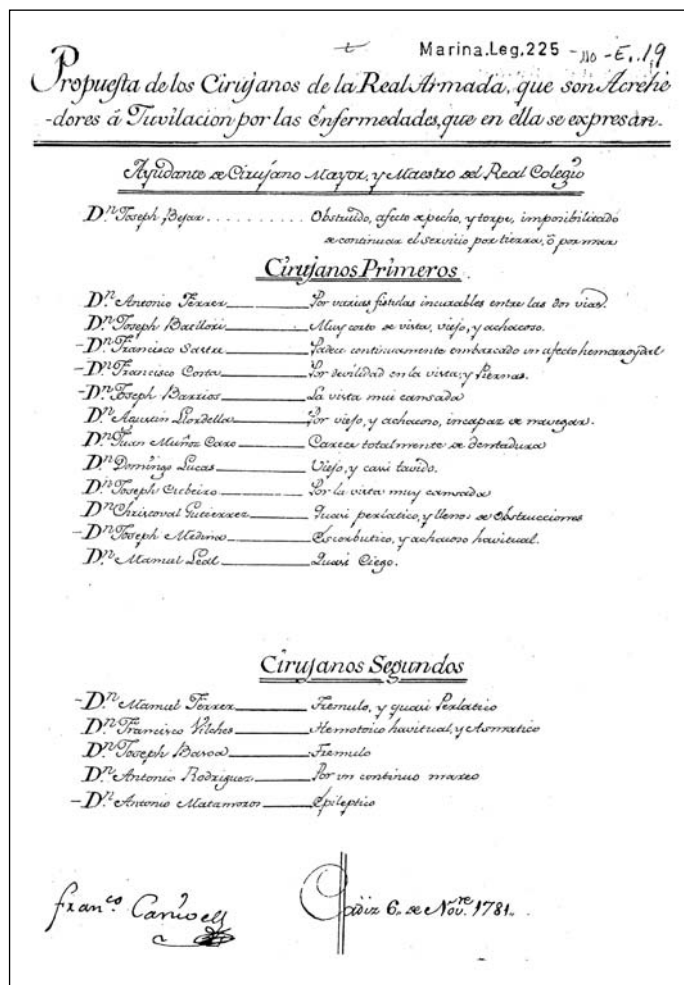 Marina.Leg,225 - no - E..19
Propuesta de los Cirujanos de la Real Armada, que son Acrehe
-dores á Juvilacion por las Enfermedades, que en ella se expresan.
Ayudante de Cirujano Mayor, y Maestro del Real Colegio
Dn. Joseph Bejar .......... Obstruido, afecto de pecho, y torpe, imposibilitado
de continuar el servicio por tierra, ô por mar
Cirujanos Primeros.
Dn. Antonio Ferrer Por varias fistulas incurables entre las dos vias.
Dn. Joseph Batllori Muy corto de vista, viejo, y achacoso.
- Dn. Francisco Sastre Padece continuamente embarcado un afecto hemorroydal
- Dn. Francisco Costa Por devilidad en la vista, y Piernas.
- Dn. Joseph Barrios La vista mui cansada
Dn. Agustin Llordella Por viejo, y achacoso, incapaz de navegar.
Dn. Juan Muñoz Caro Carece totalmente de dentadura
Dn. Domingo Lucas Viejo, y casi tavido.
Dn. Joseph Por la vista muy cansada
Dn. Christoval Gutierrez Quasi perlatico, y lleno de Obstrucciones
- Dn. Joseph Medina Escorbutico, y achacoso havitual.
Dn. Manuel Leal Quasi Ciego.
Cirujanos Segundos
- Dn. Manuel Ferrer Tremulo, y quasi Perlatico
Dn. Francisco Vilches Hemotoico havitual, y Asmatico
Dn. Joseph Tremulo
Dn. Antonio Rodriguez Por un continuo mareo
- Dn. Antonio Matamoros Epileptico
Franco. Canivell
Cádiz 6. de Novre. 1781.